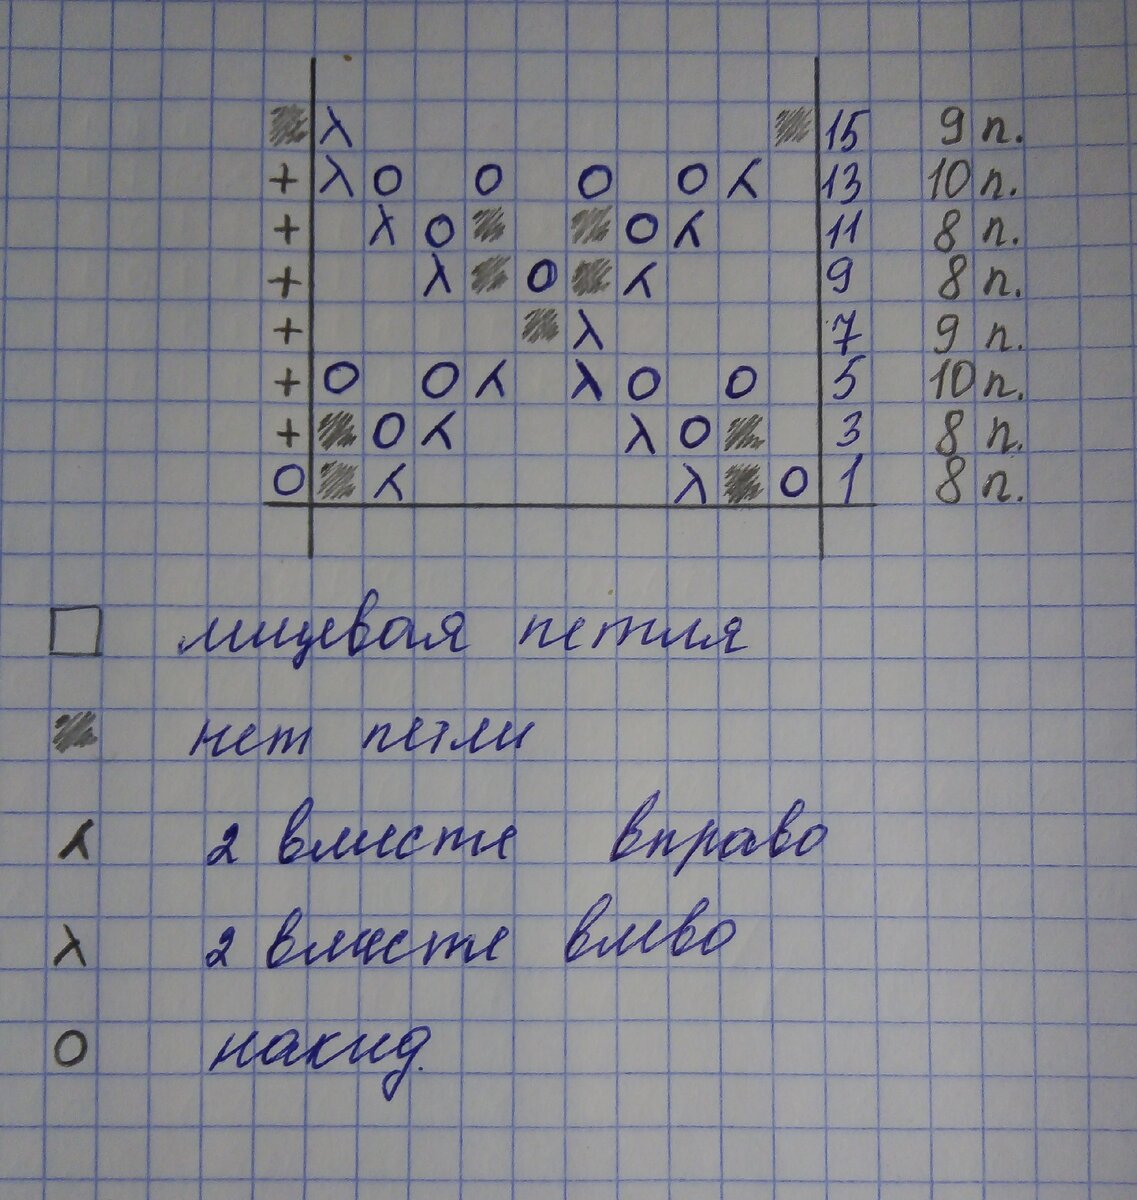 λ 15 9 п.
+ λ O O O O ⅄ 13 10 п.
+ λ O O ⅄ 11 8 п.
+ λ O ⅄ 9 8 п.
+ λ 7 9 п.
+ O O ⅄ λ O O 5 10 п.
+ O ⅄ λ O 3 8 п.
O ⅄ λ O 1 8 п.
лицевая петля
нет петли
⅄ 2 вместе вправо
λ 2 вместе влево
O накид.